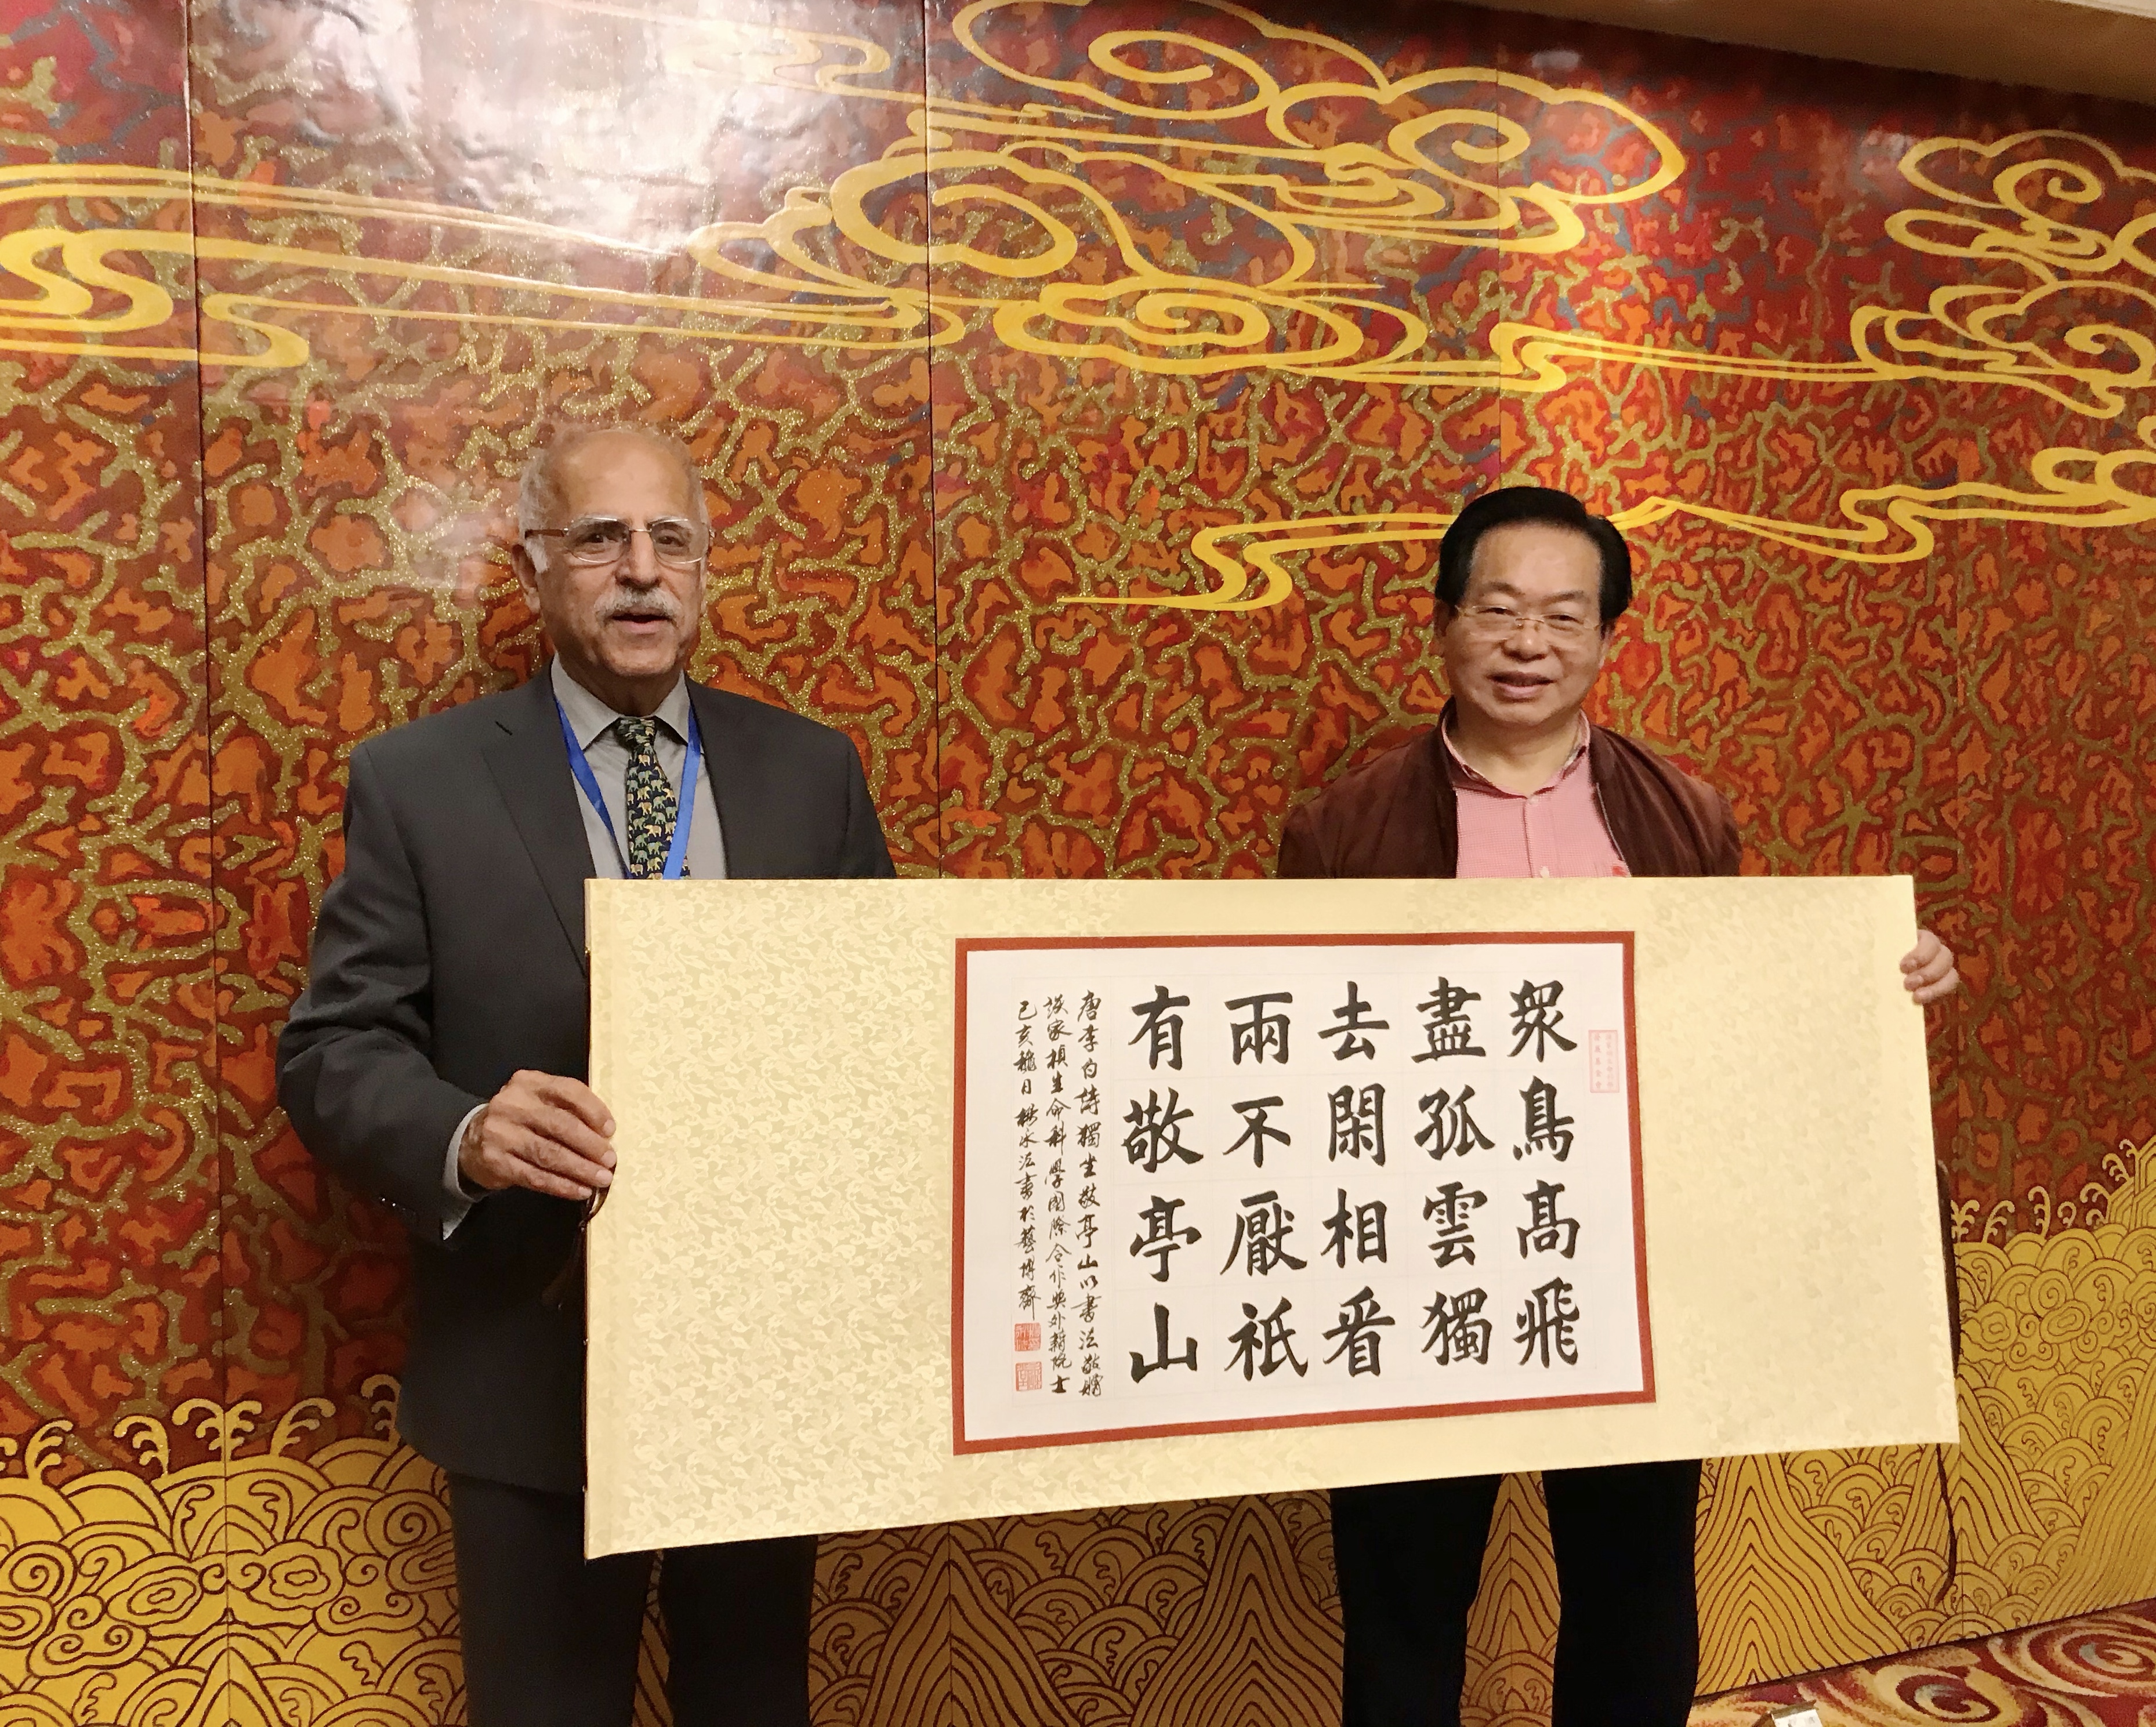 眾鳥高飛
盡孤雲獨
去閑相看
兩不厭祇
有敬亭山
唐李白詩獨坐敬亭山以書法敬贈
埃家楨生命科學國際合作獎外籍院士
己亥穐日楊永法書於藝博齋